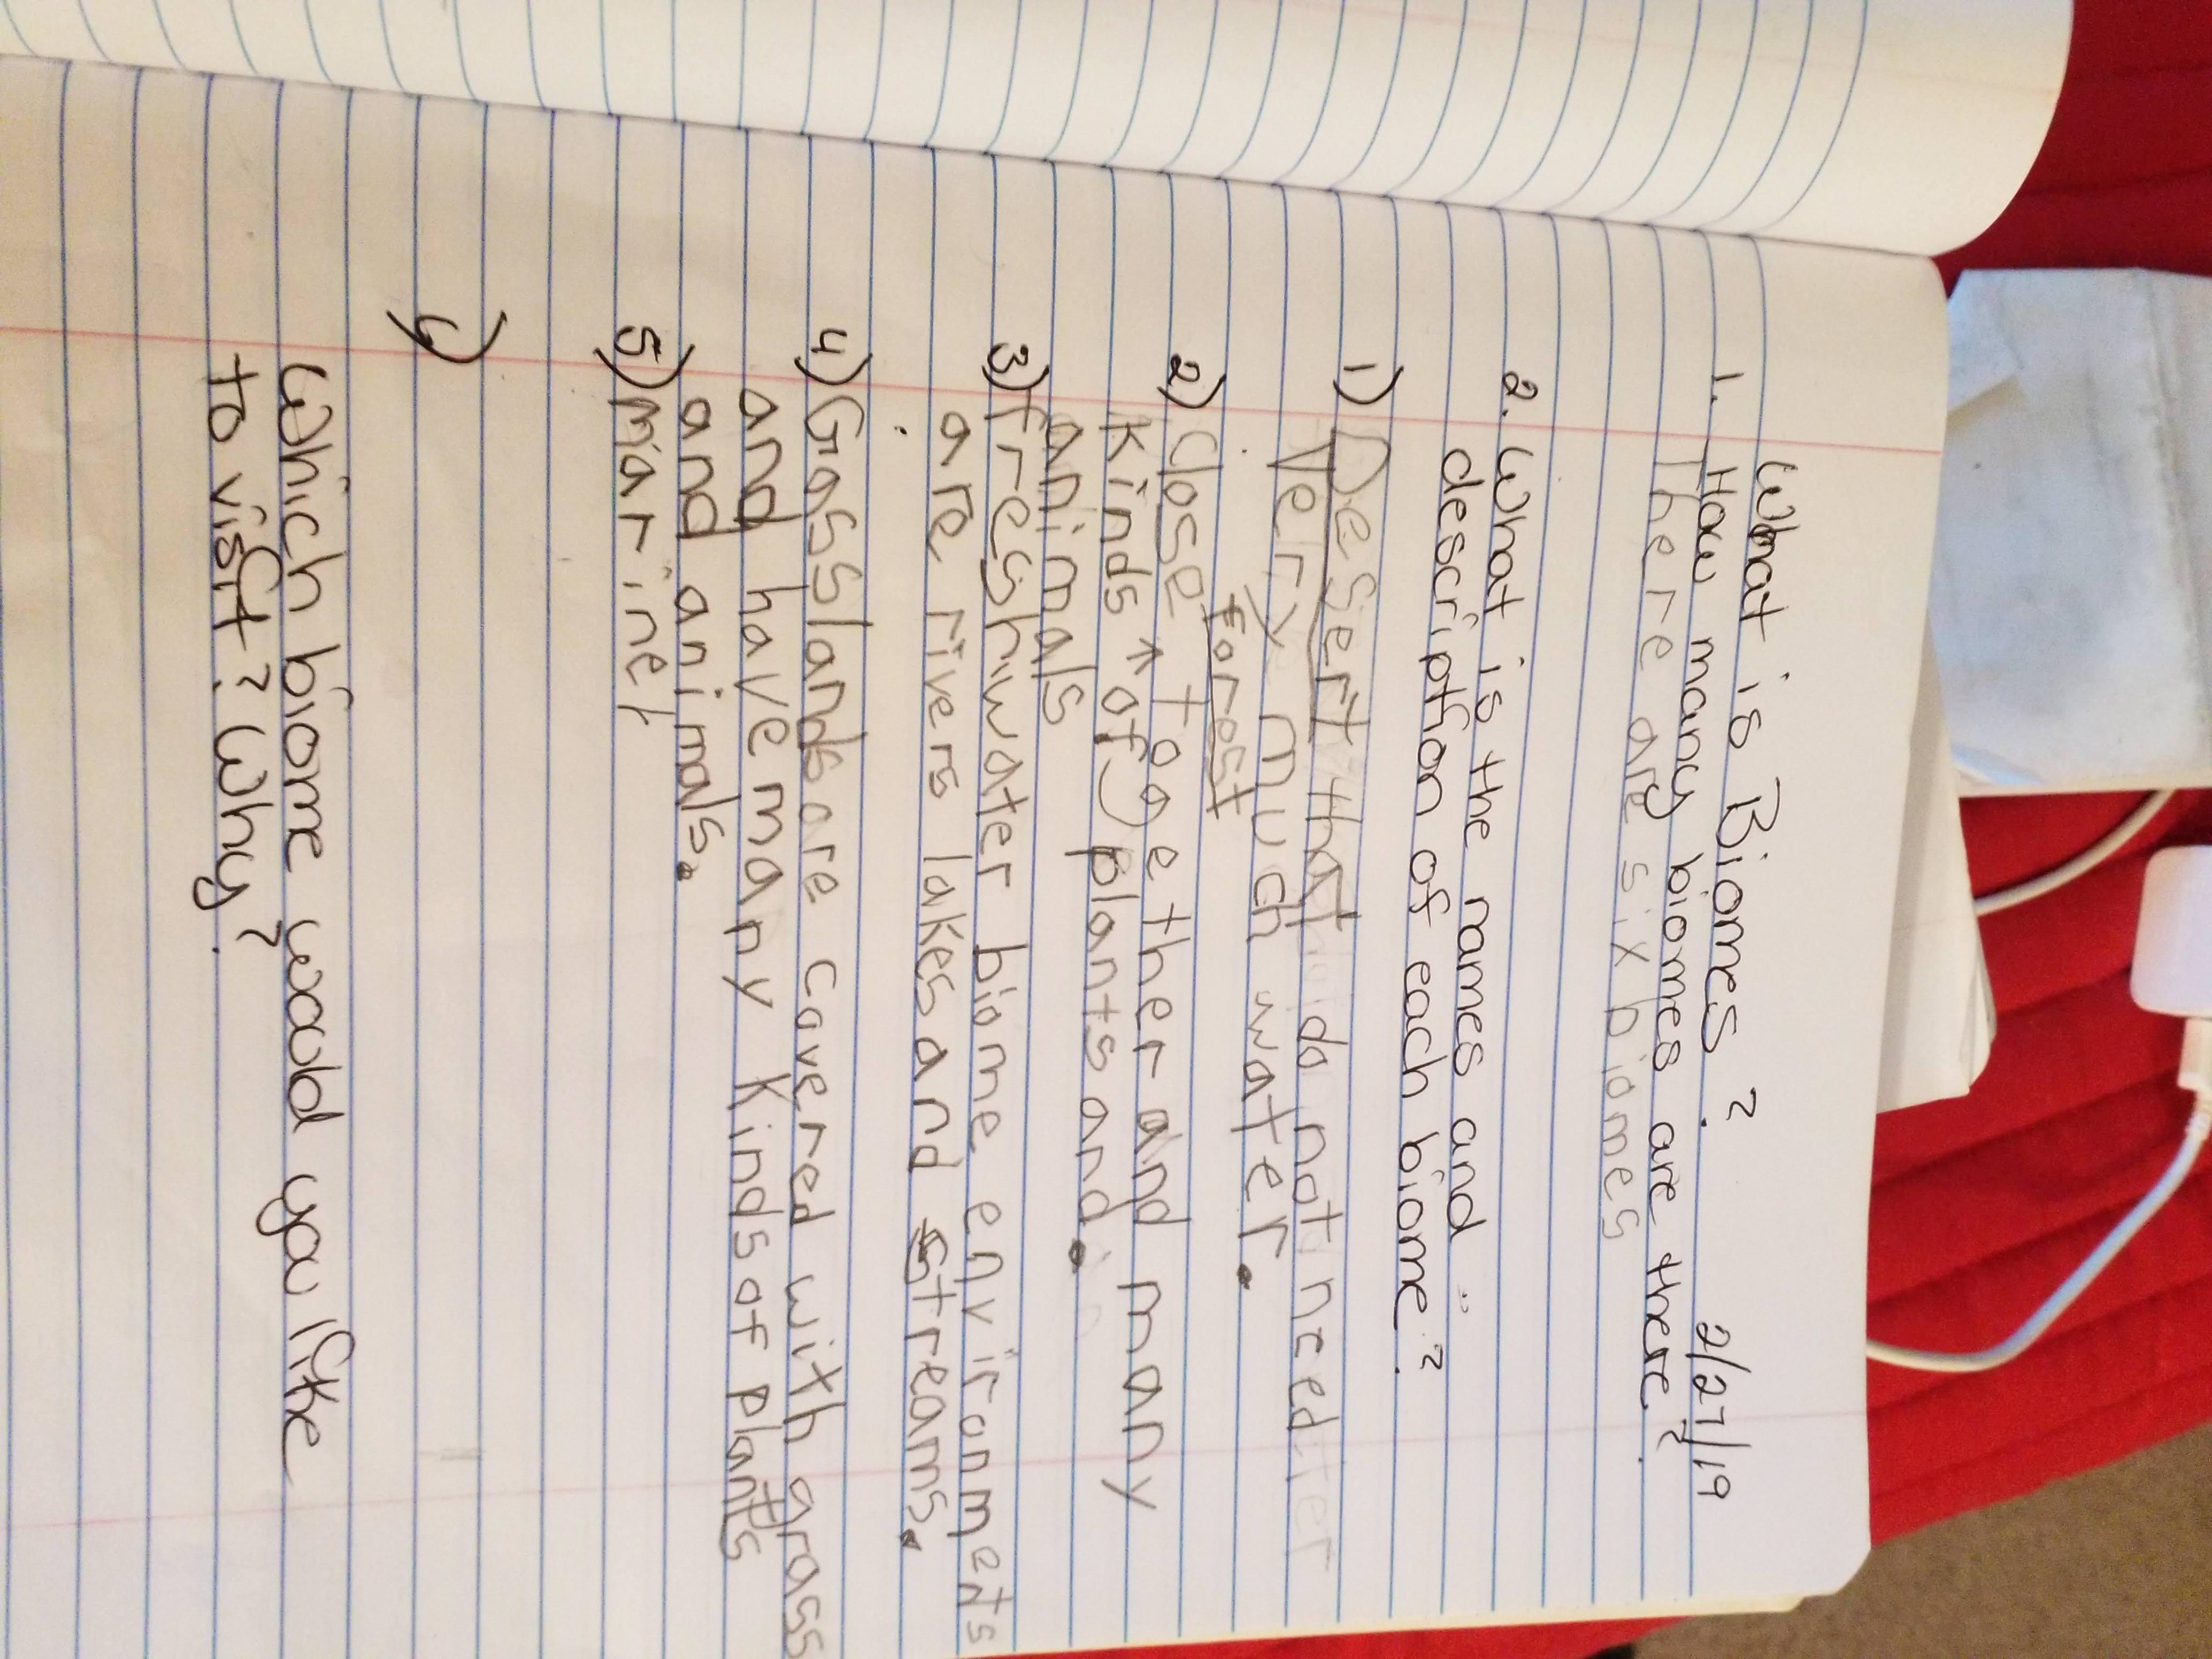 What is Biomes?
2/27/19
1. How many biomes are there?
There are six biomes
2. What is the names and
description of each biome?
1) Desert that do not need
very much water.
forest
2) close together and many
kinds ^ of plants and.
animals
3) freshwater biome environments
are rivers lakes and streams.
4) Gasslands are covered with grass
and have many kinds of plants
and animals.
5) marine
Which biome would you like
to visit? Why?